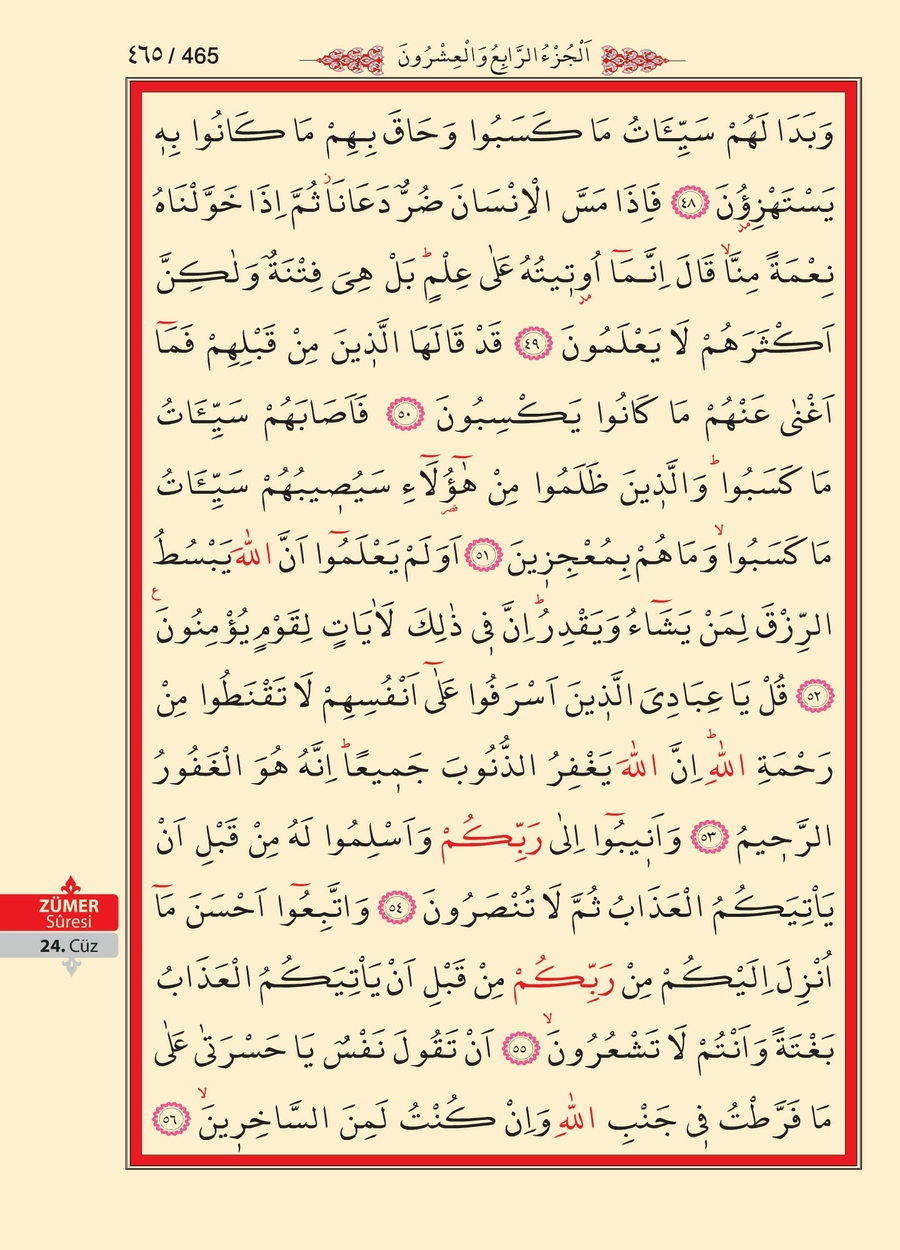 ٤٦٥ / 465
اَلْجُزْءُ الرَّابِعُ وَالْعِشْرُونَ
وَبَدَا لَهُمْ سَيِّـَٔاتُ مَا كَسَبُوا وَحَاقَ بِهِمْ مَا كَانُوا بِه۪
يَسْتَهْزِؤُ۫نَ ﴿٤٨﴾ فَاِذَا مَسَّ الْاِنْسَانَ ضُرٌّ دَعَانَاۘ ثُمَّ اِذَا خَوَّلْنَاهُ
نِعْمَةً مِنَّاۙ قَالَ اِنَّـمَٓا اُو۫ت۪يتُهُ عَلٰى عِلْمٍۜ بَلْ هِيَ فِتْنَةٌ وَلٰكِنَّ
اَكْثَرَهُمْ لَا يَعْلَمُونَ ﴿٤٩﴾ قَدْ قَالَهَا الَّذ۪ينَ مِنْ قَبْلِهِمْ فَمَٓا
اَغْنٰى عَنْهُمْ مَا كَانُوا يَكْسِبُونَ ﴿٥٠﴾ فَاَصَابَهُمْ سَيِّـَٔاتُ
مَا كَسَبُواۜ وَالَّذ۪ينَ ظَلَمُوا مِنْ هٰٓؤُ۬لَٓاءِ سَيُص۪يبُهُمْ سَيِّـَٔاتُ
مَا كَسَبُواۙ وَمَا هُمْ بِمُعْجِز۪ينَ ﴿٥١﴾ اَوَلَمْ يَعْلَمُٓوا اَنَّ اللّٰهَ يَبْسُطُ
الرِّزْقَ لِمَنْ يَشَٓاءُ وَيَقْدِرُۜ اِنَّ ف۪ي ذٰلِكَ لَاٰيَاتٍ لِقَوْمٍ يُؤْمِنُونَ۟
﴿٥٢﴾ قُلْ يَا عِبَادِيَ الَّذ۪ينَ اَسْرَفُوا عَلٰٓى اَنْفُسِهِمْ لَا تَقْنَطُوا مِنْ
رَحْمَةِ اللّٰهِۜ اِنَّ اللّٰهَ يَغْفِرُ الذُّنُوبَ جَم۪يعًاۜ اِنَّهُ هُوَ الْغَفُورُ
الرَّح۪يمُ ﴿٥٣﴾ وَاَن۪يبُٓوا اِلٰى رَبِّكُمْ وَاَسْلِمُوا لَهُ مِنْ قَبْلِ اَنْ
يَأْتِيَكُمُ الْعَذَابُ ثُمَّ لَا تُنْصَرُونَ ﴿٥٤﴾ وَاتَّبِعُٓوا اَحْسَنَ مَٓا
اُنْزِلَ اِلَيْكُمْ مِنْ رَبِّكُمْ مِنْ قَبْلِ اَنْ يَأْتِيَكُمُ الْعَذَابُ
بَغْتَةً وَاَنْتُمْ لَا تَشْعُرُونَۙ ﴿٥٥﴾ اَنْ تَقُولَ نَفْسٌ يَا حَسْرَتٰى عَلٰى
مَا فَرَّطْتُ ف۪ي جَنْبِ اللّٰهِ وَاِنْ كُنْتُ لَمِنَ السَّاخِر۪ينَۙ ﴿٥٦﴾
ZÜMER
Sûresi
24. Cüz